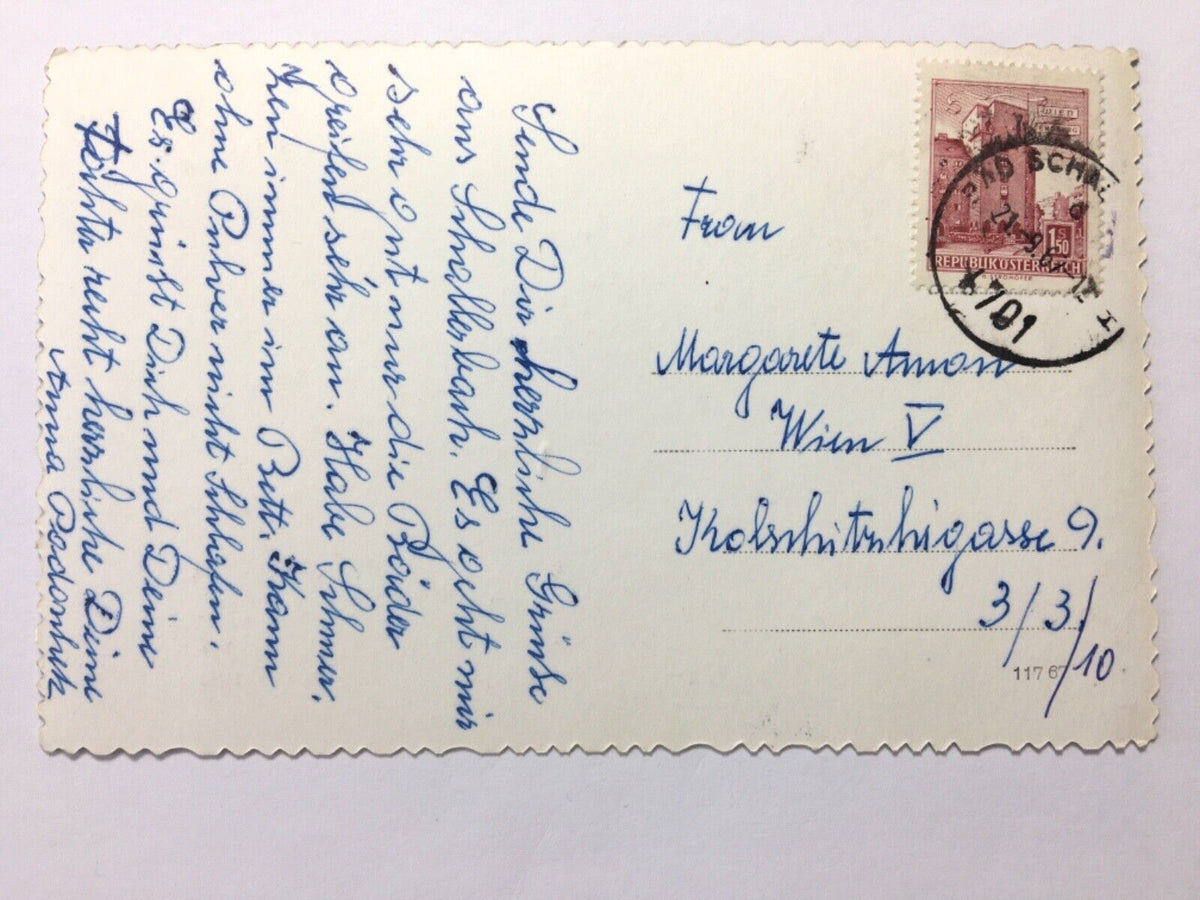 Sende Dir herzliche Grüsse
aus Schallerbach. Es geht mir
sehr gut nur die Bäder
greifen sehr an. Habe Schmer.
zen immer im Bett. Kann
ohne Pulver nicht Schlafen.
Es grüsst Dich und Deine
Töchter recht herzliche Deine
Anna
Frau
Margarete Amon
Wien V
Kolschitzkigasse 9.
3/3/10
117 67
WIEN
S
1 50
REPUBLIK ÖSTERREICH
BAD SCHAL
701